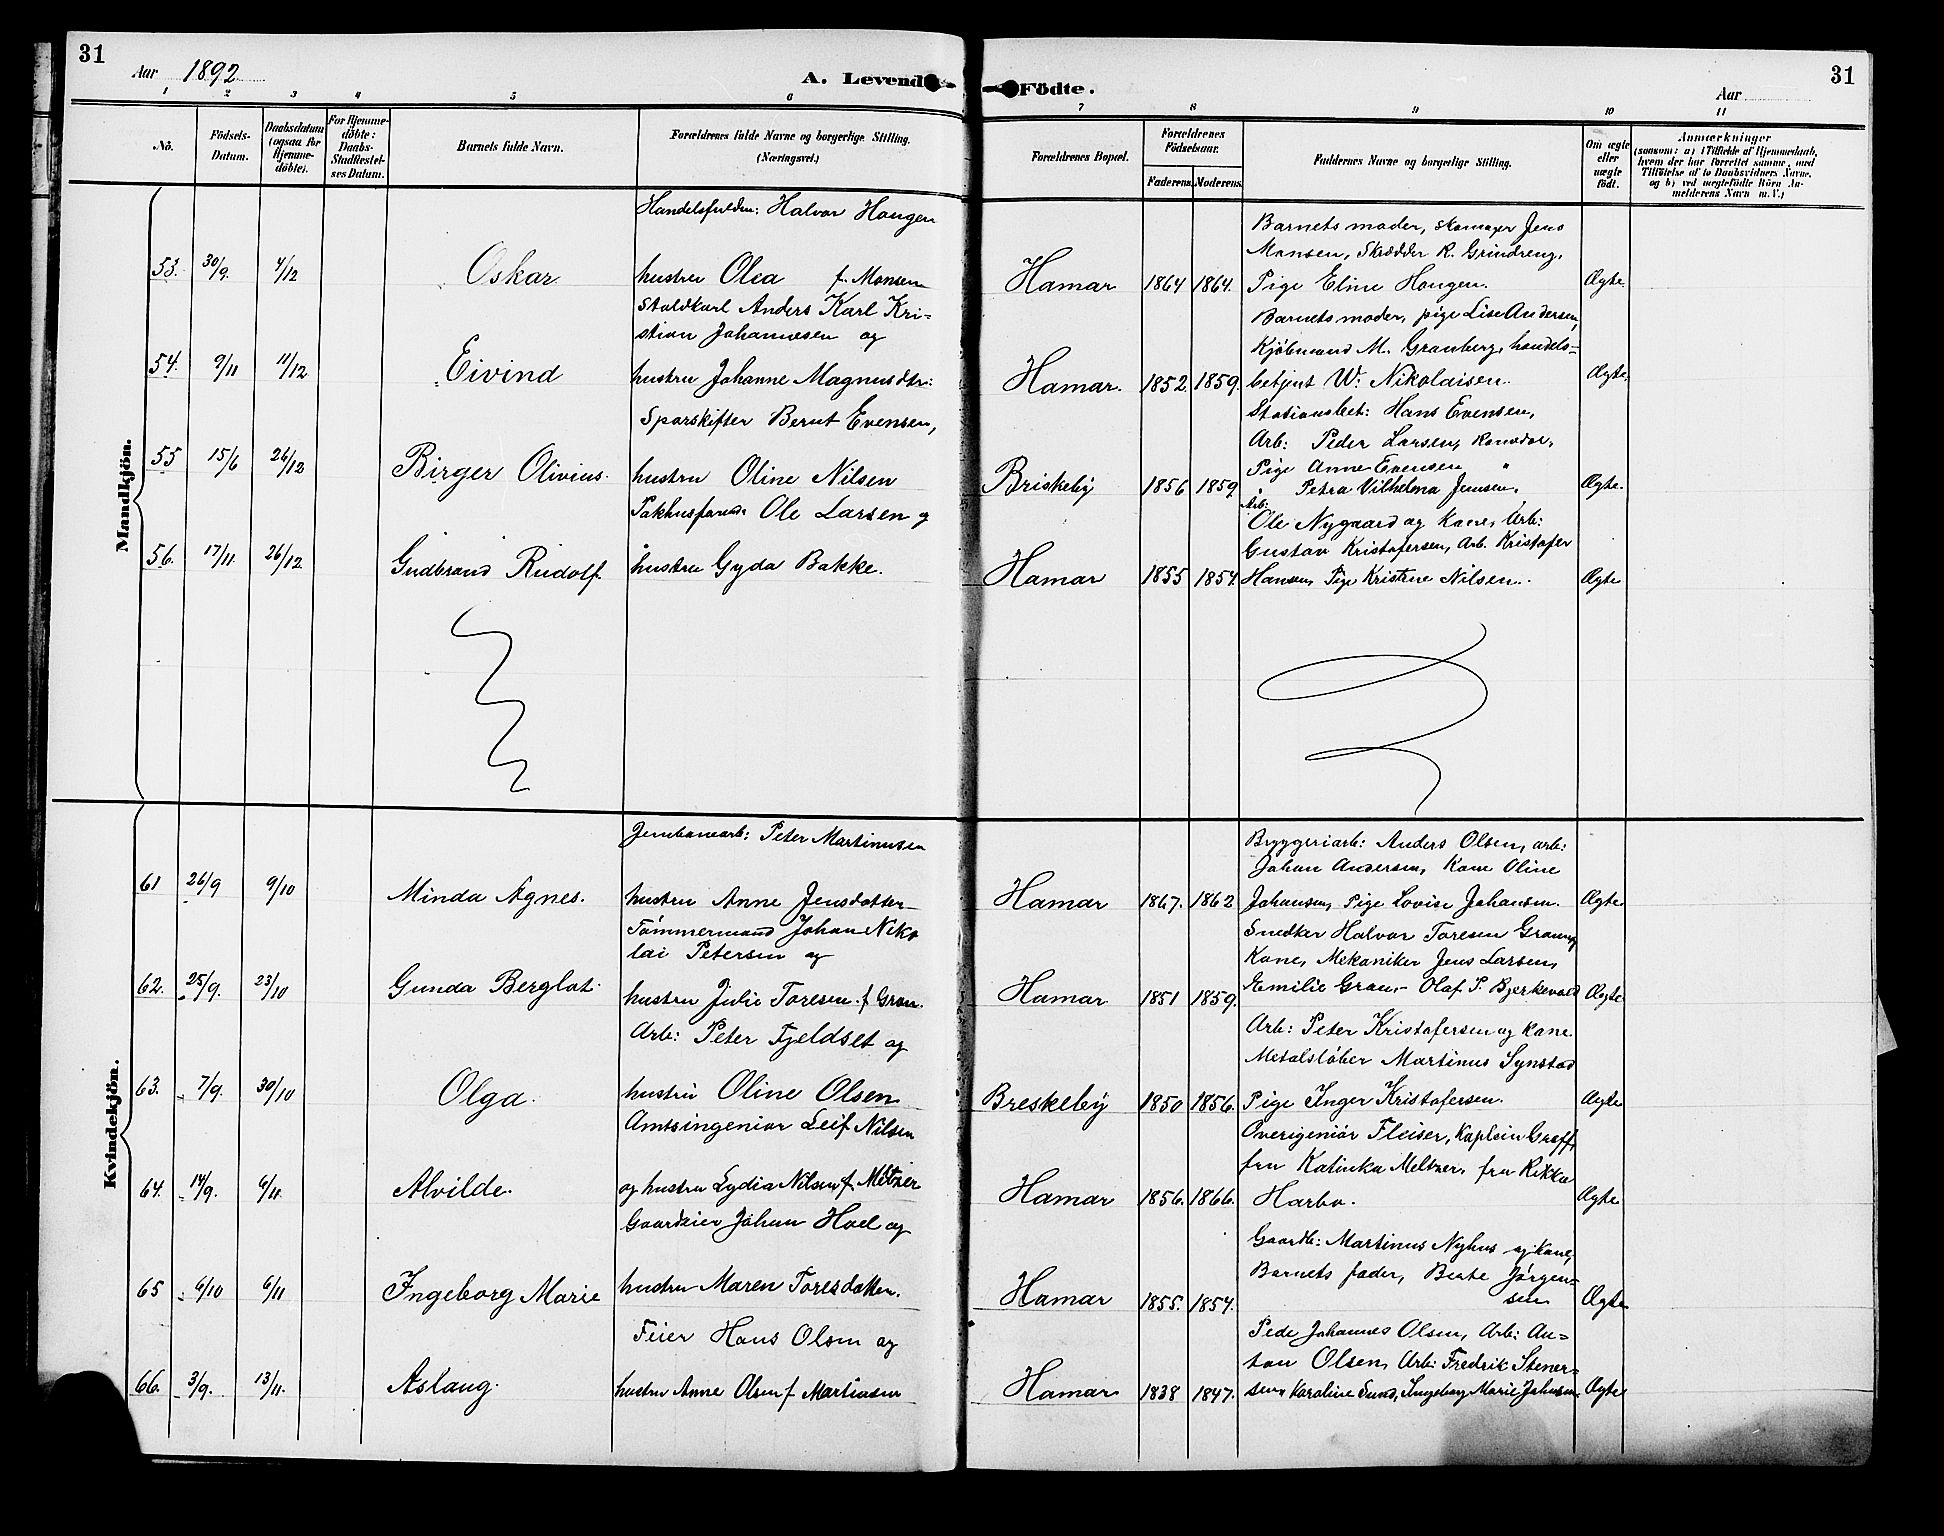 31
Aar 1892
A. Levende
Födte.
31
Aar
1 2 3 4 5 6 7 8 9 10 11
No.
Födsels-Datum.
Daabsdatum (ogsaa for Hjemmedöbte).
For Hjemmedöbte: Daabs-Stadfæstelses Datum.
Barnets fulde Navn.
Forældrenes fulde Navne og borgerlige Stilling.
(Næringsvei.)
Forældrenes Bopæl.
Forældrenes Födselsaar.
Faderens. Moderens.
Faddernes Navne og borgerlige Stilling.
Om ægte eller uægte födt.
Anmærkninger
(saasom: a) i Tilfælde af Hjemmedaab, hvem der har forrettet samme, med Tilföielse af to Daabsvidners Navne, og b) ved uægtefödte Börn Anmelderens Navn m. V.)
Mandkjön.
Handelsfuldm: Halvor Haugen
Barnets moder, skomager Jens
Monsen, Skrædder R. Grindreng,
53. 30/9. 4/12 Oskar. hustru Olea f. Monsen Hamar 1864 1864. Pige Eline Haugen. Ægte.
Staldkarl Anders Karl Kri=
stian Johannesen og
Barnets moder, pige Lise Andersen,
Kjøbmand M. Granberg, handels=
54. 9/11 11/12 Eivind hustru Johanne Magnusdtr: Hamar. 1852. 1859. betjent W. Nikolaisen. Ægte.
Sporskifter Bernt Evensen,
Stationsbet: Hans Evensen,
Arb: Peder Larsen,
Pige Anne Evensen "
55 15/6 26/12 Birger Olivius. hustru Oline Nilsen Briskeby 1856 1859 Petra Vilhelma Jensen. Ægte.
Pakhusform. Ole Larsen og
Arb:
Ole Nygaard og Kone, Arb:
Gustav Kristofersen, Arb. Kristofer
56. 17/11. 26/12 Gudbrand Rudolf. hustru Gyda Bakke. Hamar 1855 1854 Hansen, Pige Kristine Nilsen. Ægte
Kvindekjön.
Jernbanearb: Peter Martinusen
Bryggeriarb: Anders Olsen, arb:
Johan Andersen, Kone Oline
61 26/9 9/10 Minda Agnes. hustru Anne Jensdatter Hamar 1867. 1862 Johansen, Pige Lovise Johansen. Ægte
Tømmermand Johan Niko
lai Petersen og
Snedker Halvor Toresen Gran og
Kone, Mekaniker Jens Larsen,
62. 25/9. 23/10 Gunda Berglot. hustru Julie Toresen f. Gran. Hamar 1851 1859. Emilie Gran, Olaf P. Bjerkevold Ægte
Arb: Peter Fjeldset og
Arb: Peter Kristofersen og kone
Metalstøber Martinus Synstad
63. 7/9. 30/10 Olga. hustru Oline Olsen Breskeby 1850 1856. Pige Inger Kristofersen. Ægte
Amtsingeniør Leif Nilsen
Overigeniør Fleiser, Kaptein Graff,
fru Katinka Meltzer, fru Rikka
64. 14/9. 6/11. Alvilde. og hustru Lydia Nilsen f. Meltzer Hamar 1856. 1866. Harbo. Ægte
Gaardeier Johan Hoel og
Gaardb: Martinus Nyhus og Kone,
Barnets fader, Beate Jørgen=
65 6/10 6/11 Ingeborg Marie hustru Maren Toresdatter. Hamar 1855. 1854. sen Ægte
Feier Hans Olsen og
Pede Johannes Olsen, Arb: An=
ton Olsen, Arb: Fredrik Stener=
66. 3/9. 13/11. Aslaug. hustru Anne Olsen f Martinsen Hamar 1838 1847. sen, Karoline Sund, Ingeborg Marie Johnsen Ægte